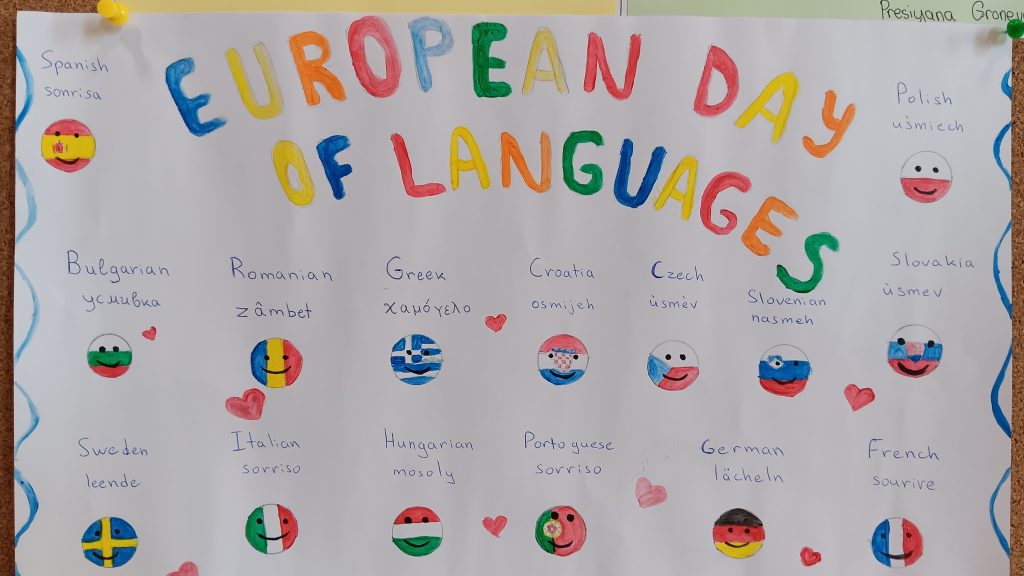 Presiyana
EUROPEAN DAY
OF LANGUAGES
Spanish
sonrisa
Polish
uśmiech
Bulgarian
усмивка
Romanian
zâmbet
Greek
χαμόγελο
Croatia
osmijeh
Czech
ùsmèv
Slovenian
nasmeh
Slovakia
ùsmev
Sweden
leende
Italian
sorriso
Hungarian
mosoly
Portoguese
sorriso
German
lächeln
French
sourire